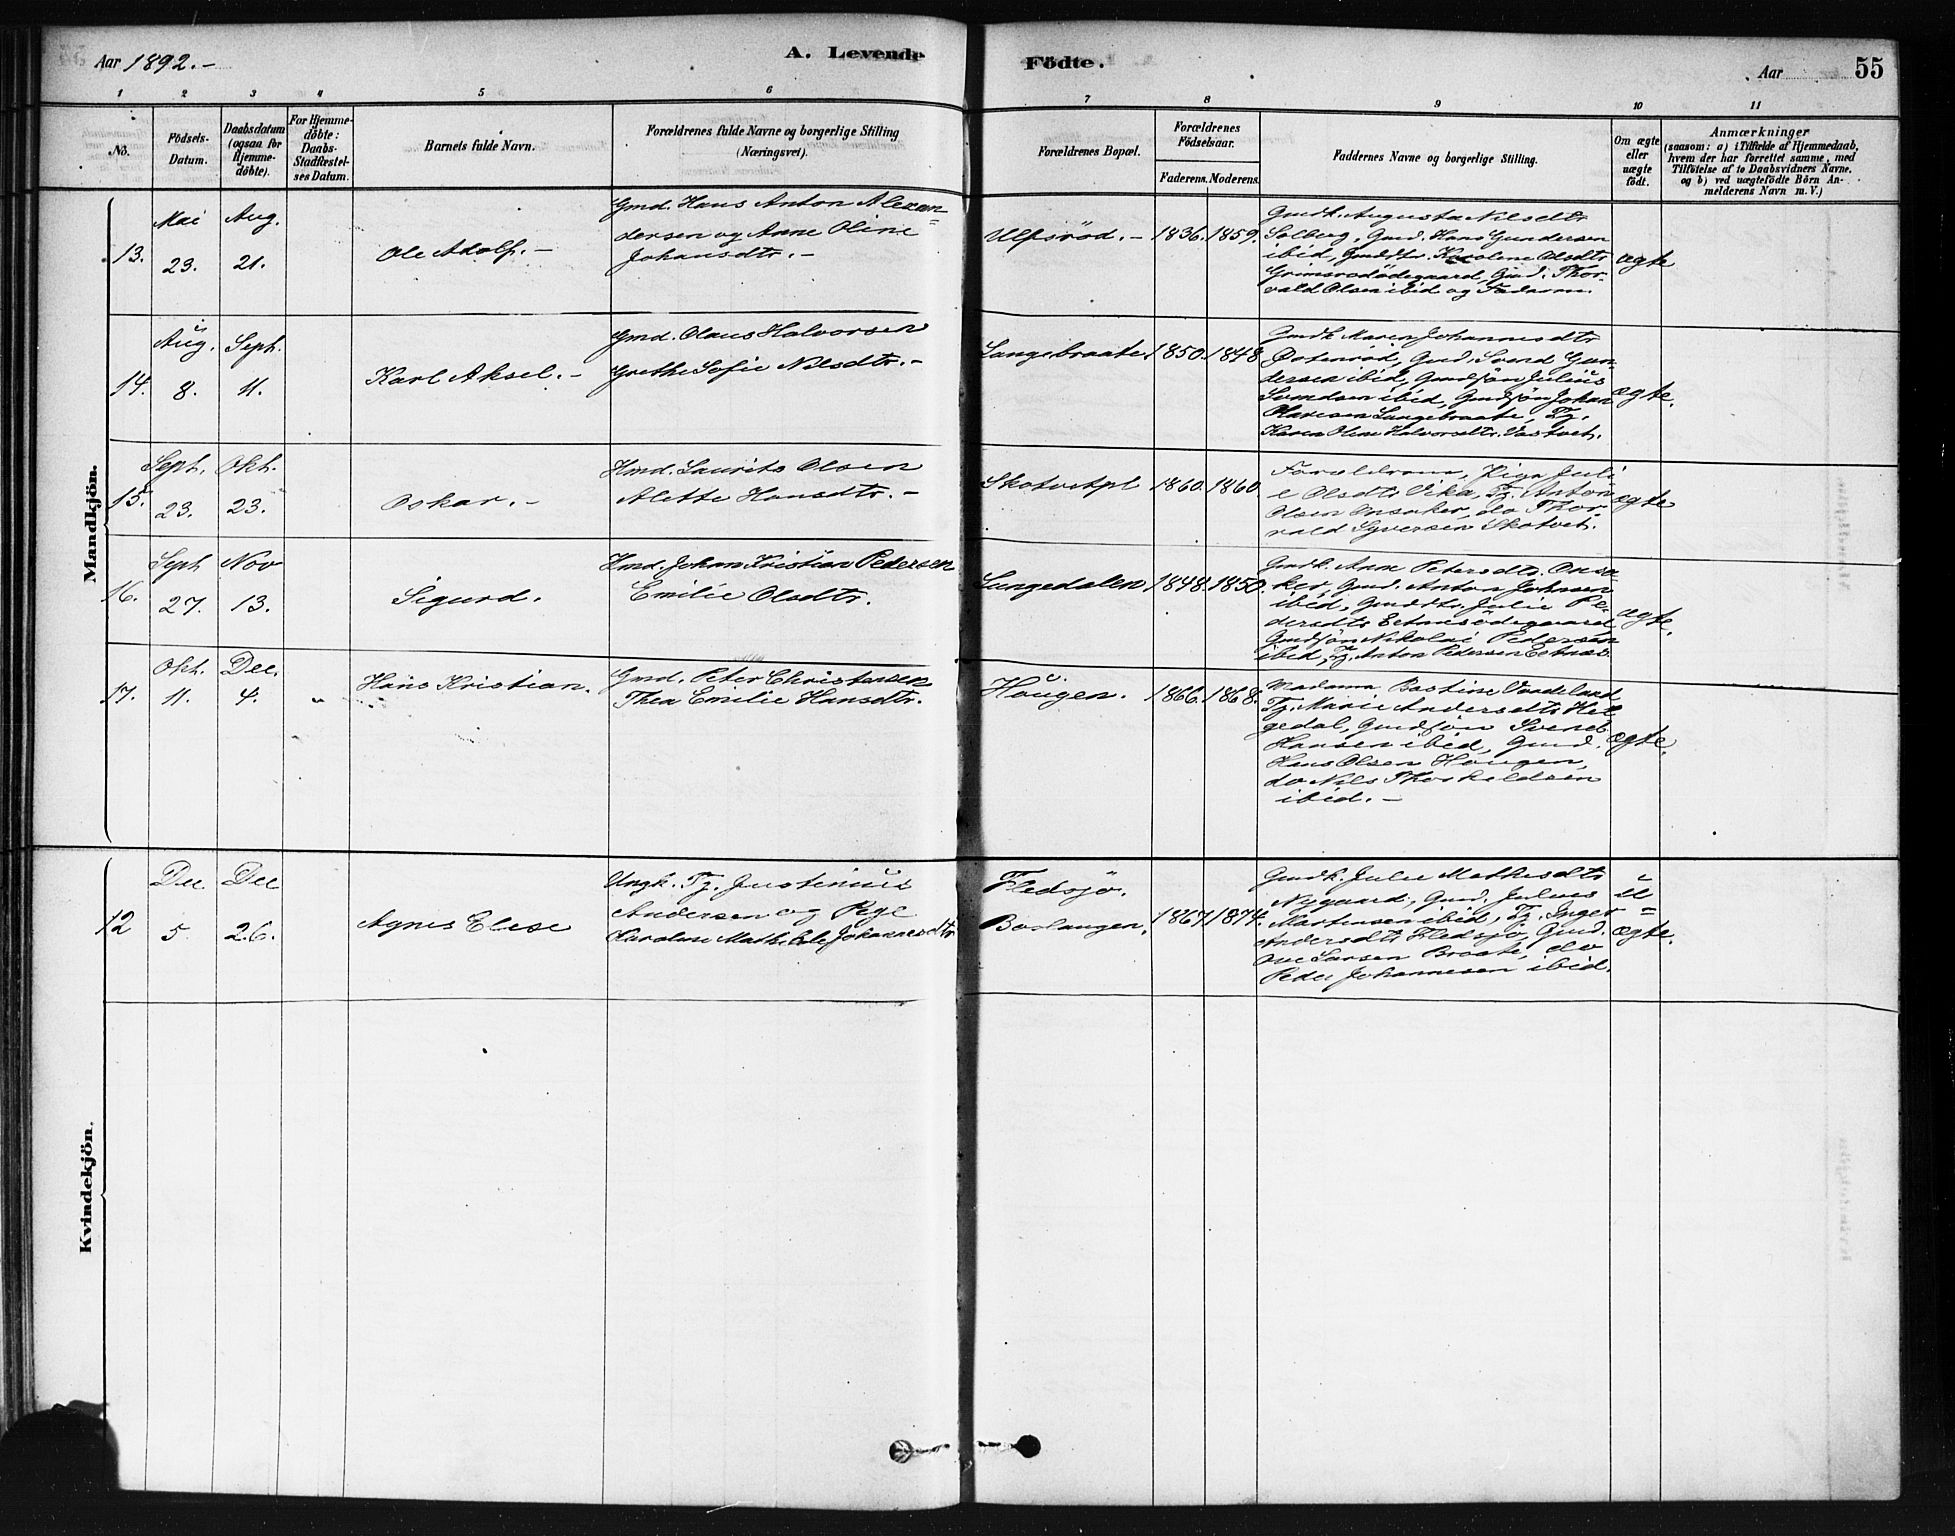 Aar 1892.-
A. Levende
Födte.
Aar
55
1 2 3 4 5 6 7 8 9 10 11
No.
Födsels-
Datum.
Daabsdatum
(ogsaa for
Hjemme-
döbte).
For Hjemme-
döbte:
Daabs-
Stadfæstel-
ses Datum.
Barnets fulde Navn.
Forældrenes fulde Navne og borgerlige Stilling
(Næringsvei).
Forældrenes Bopæl.
Forældrenes
Födselsaar.
Faderens. Moderens.
Faddernes Navne og borgerlige Stilling.
Om ægte
eller
uægte
födt.
Anmærkninger
(saasom: a) i Tilfælde af Hjemmedaab,
hvem der har forrettet samme, med
Tilföielse af to Daabsvidners Navne,
og b) ved uægtefödte Börn An-
melderens Navn m. V.)
Mandkjön.
13.
Mai
23.
Aug.
21.
Ole Adolf. -
Gmd. Hans Anton Alexan=
dersen og Anne Oline
Johansdtr. -
Ulfsröd. -
1836. 1859.
Gmdk. Augusta Nilsdtr
Solberg, Gmd. Hans Gundersen
ibid, Gmddtr. Karolene Olsdtr
Grimsrödödegaard, Gmd. Thor-
vald Olsen ibid og Faderen.
ægte
14.
Aug.
8.
Sept.
11.
Karl Aksel. -
Gmd. Olaus Halvorsen
Grethe Sofie Nilsdtr. -
Langebraate
1850. 1848
Gmdk Maren Johannesdtr
Östenröd, Gmd. Svend Gun-
dersen ibid, Gmdsön Julius
Svendsen ibid, Gmdsön Johan
Olavesen Langebraate, Tj.
Karen Oline Halvorsdtr. Vastvet.
ægte.
15.
Sept.
23.
Okt.
23.
Oskar. -
Hmd. Laurits Olsen
Alette Hansdtr. -
Skotvetpl
1860. 1860.
Forældrene, Pige Juli
e Olsdtr Vika, Tj. Anton
Olsen Onsaker, do Thor-
vald Syversen Skotvet.
ægte
16.
Sept
27.
Nov
13.
Sigurd.
Hmd. Johan Kristian Pedersen
Emilie Olsdtr.
Langedalen
1848. 1850.
Gmdk. Anne Petersdtr. Onsa-
ker, Gmd. Anton Johnsen
ibid, Gmddtr. Julie Pe-
dersdtr Eetnesödegaard
Gmdsön Nikolai Pedersen
ibid, Tj. Anton Pedersen Eetnæs.
ægte.
17.
Okt.
11.
Dec.
4.
"
Hans Kristian.
Gmd. Peter Christensen
Thea Emilie Hansdtr.
Hougen.
1866. 1868.
Madame Bastine Vardeland
Tj. Marie Andersdtr Hel
gedal, Gmdsön Svend
Hansen ibid, Gmd.
Hans Olsen Hougen,
do Nils Thorkeldsen
ibid. -
ægte.
Kvindekjön.
12
Dec
5
Dec
26.
Agnes Elese
Ungk. Tj. Justinius
Andersen og Pige
Karoline Math. Ele Johannesdtr
Fledsjö.
Boslangen.
1867. 1874.
Gmdk. Julie Mathisdtr
Nygaard, Gmd. Julius
Martinsen ibid, Tj. Inger
Andersdtr Fledsjö, Gmd.
Ove Larsen Braate, do
Peder Johannesen ibid.
u
=
ægte.